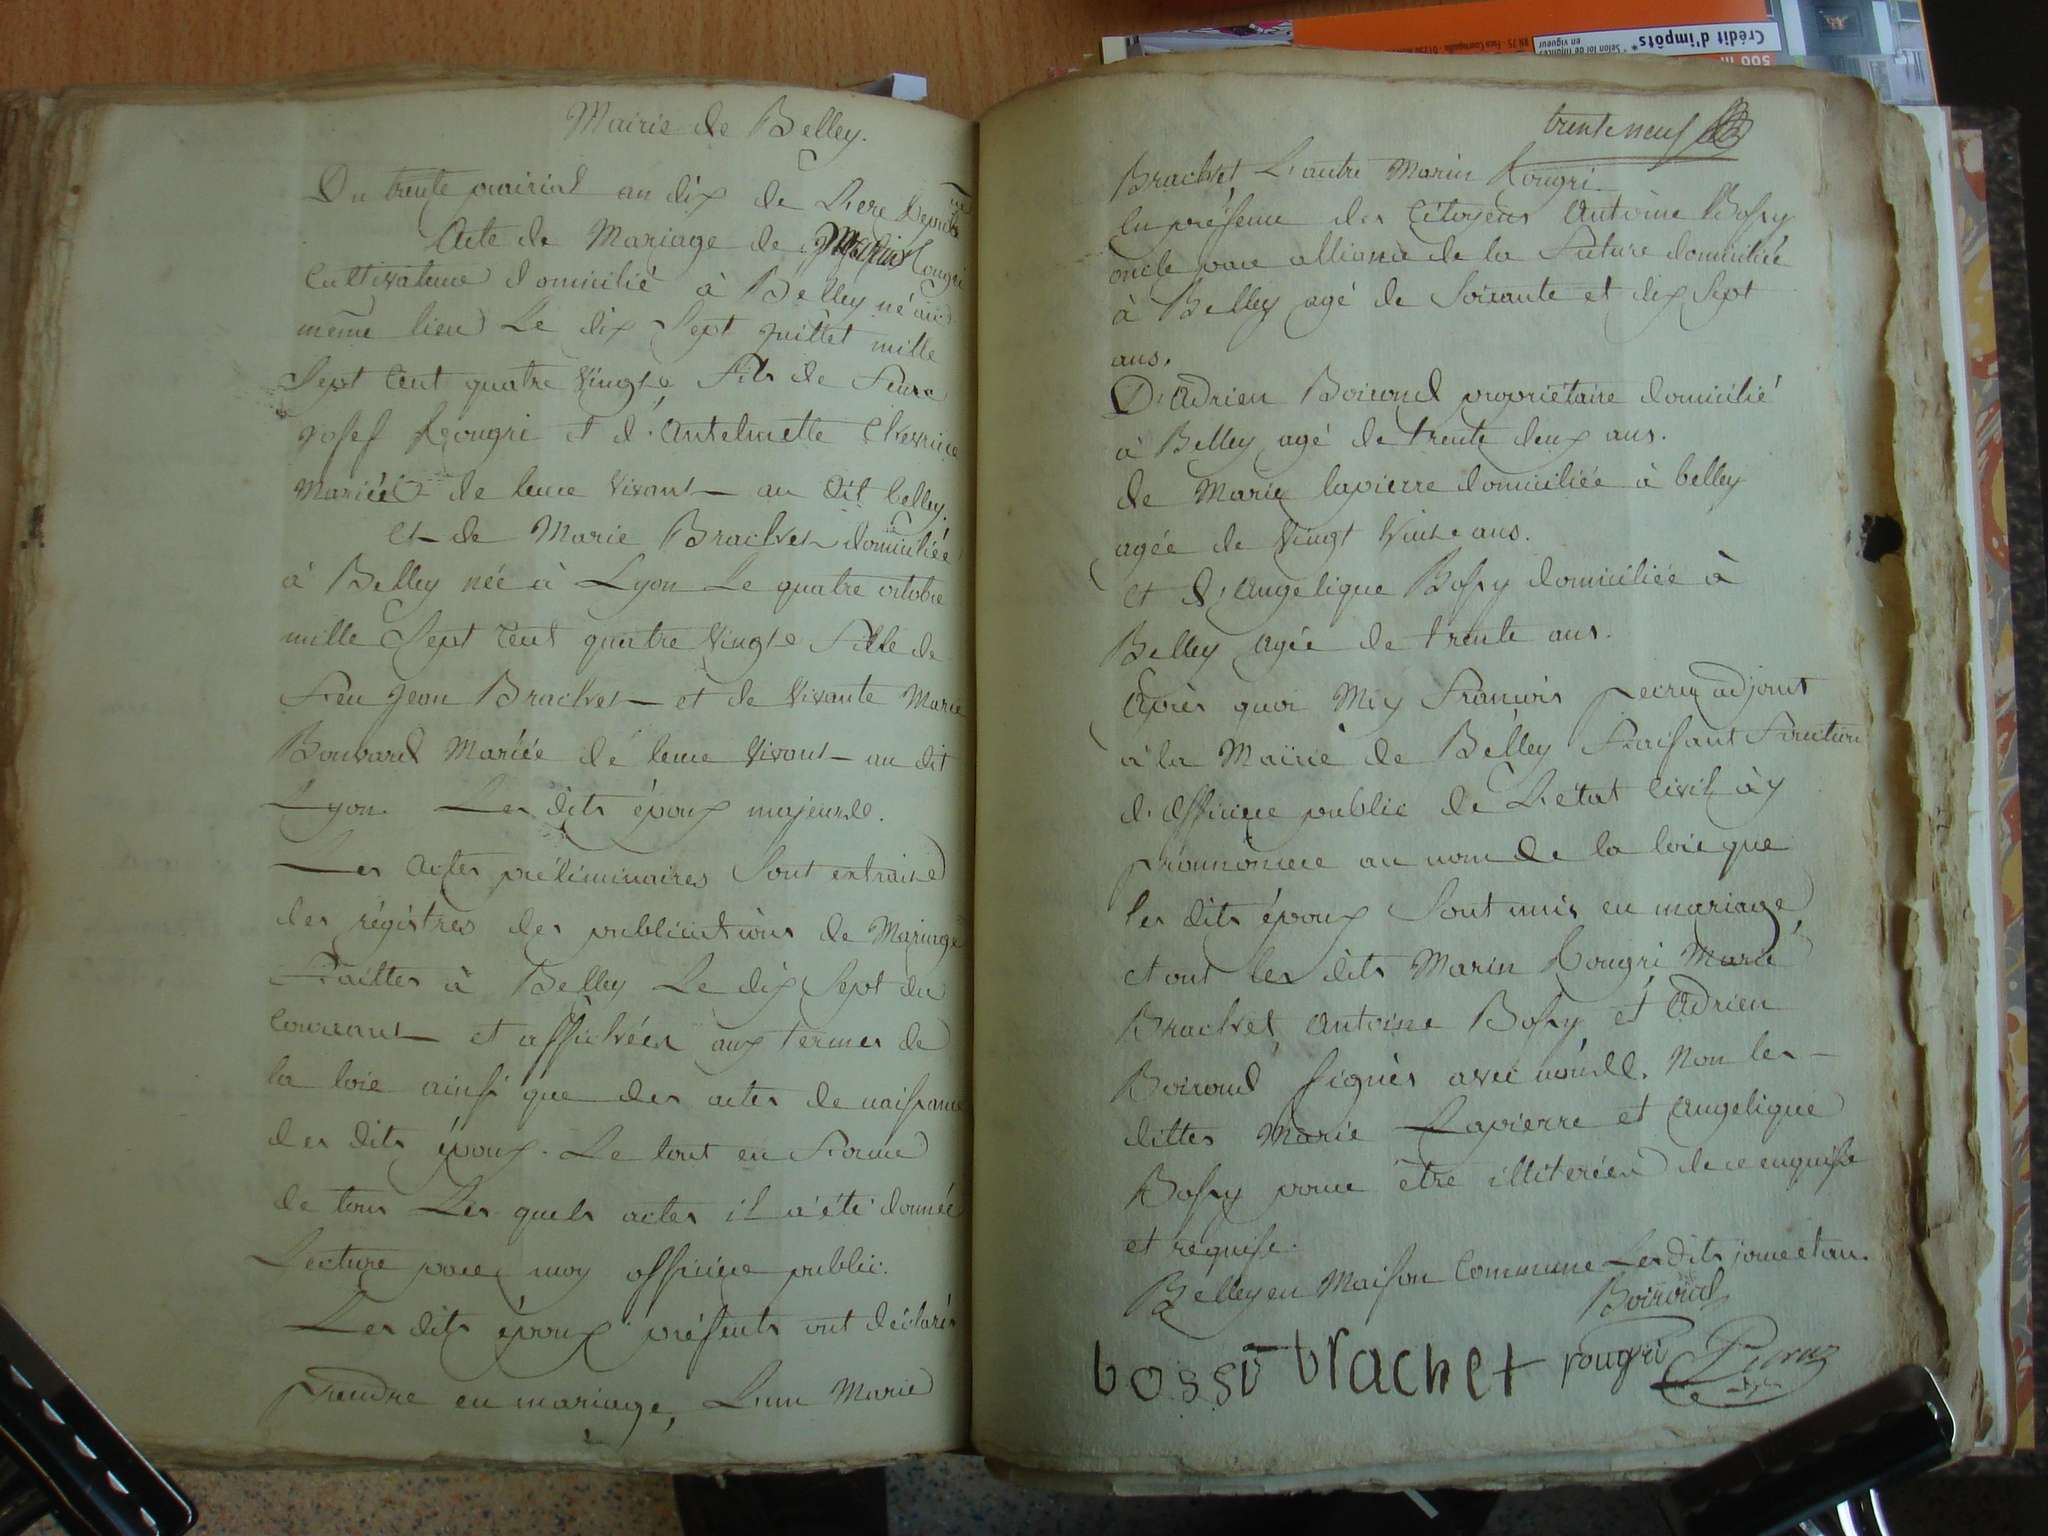 Mairie de Belley.
Du trente prairial an dix de L'ere
Acte de Mariage de Marin Rougri
Cultivateur domicilié à Belley né au
même lieu Le dix Sept juillet mille
Sept Cent quatre Vingts, Fils de Feux
Josef Rougri et d'Antelmette
Mariées de leure Vivant au Dit belley.
et de Marie Brachet domiciliée
à Belley née à Lyon Le quatre octobre
mille Sept Cent quatre Vingts Fille de
Feu Jean Brachet et de Vivante Marie
Bouvard Mariée de leure Vivant au dit
Lyon. Les dits époux majeurs.
Les Actes préliminaires Sont extraits
des régistres des publications de Mariage
Faittes à Belley Le dix Sept du
Courrant et affichées aux termes de
la loie ainsi que des actes de naissance
des dits époux. Le tout en Forme
de tous Les quels actes il a été donnée
Lecture pare moy officiee public.
Les dits époux présents ont déclarés
prendre en mariage, L'un Marie
trente neuf
Brachet L'autre Marin Rougri
En présence des Citoyens Antoine Bossy
oncle pare alliance de la Future domiciliée
à Belley agé de Soixante et dix Sept
ans.
D'Adrien Boiroud propriétaire domicilié
à Belley agé de trente deux ans.
de Marie lapierre domiciliée à belley
agée de Vingt ans.
et d'Angelique Bossy domiciliée à
Belley agée de trente ans.
Après quoi Moy François adjoint
à la Mairie de Belley Faisant Fonction
d'officiee public de L'état Civil ay
prononcée au nom de la loie que
les dits époux Sont unis en mariage,
et ont les dits Marin Rougri Marie
Brachet, Antoine Bossy et Adrien
Boiroud signés avec nous. Non les
dittes Marie Lapierre et Angelique
Bossy poure être illiterées de ce enquise
et requise.
Belley en Maison Commune Les dits jour et an.
Boiroud
bossi brachet rougri